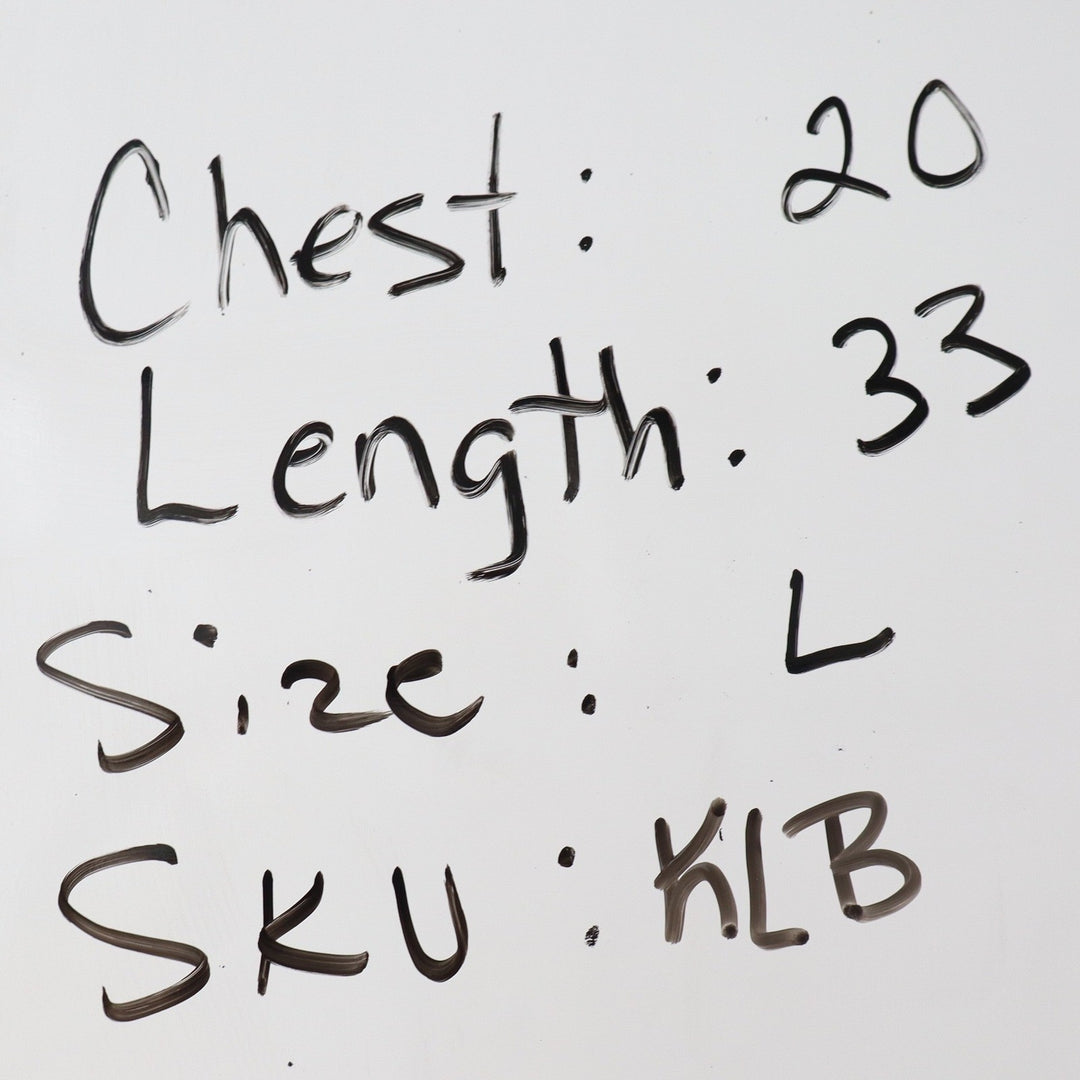 Chest: 20
Length: 33
Size: L
SKU: KLB